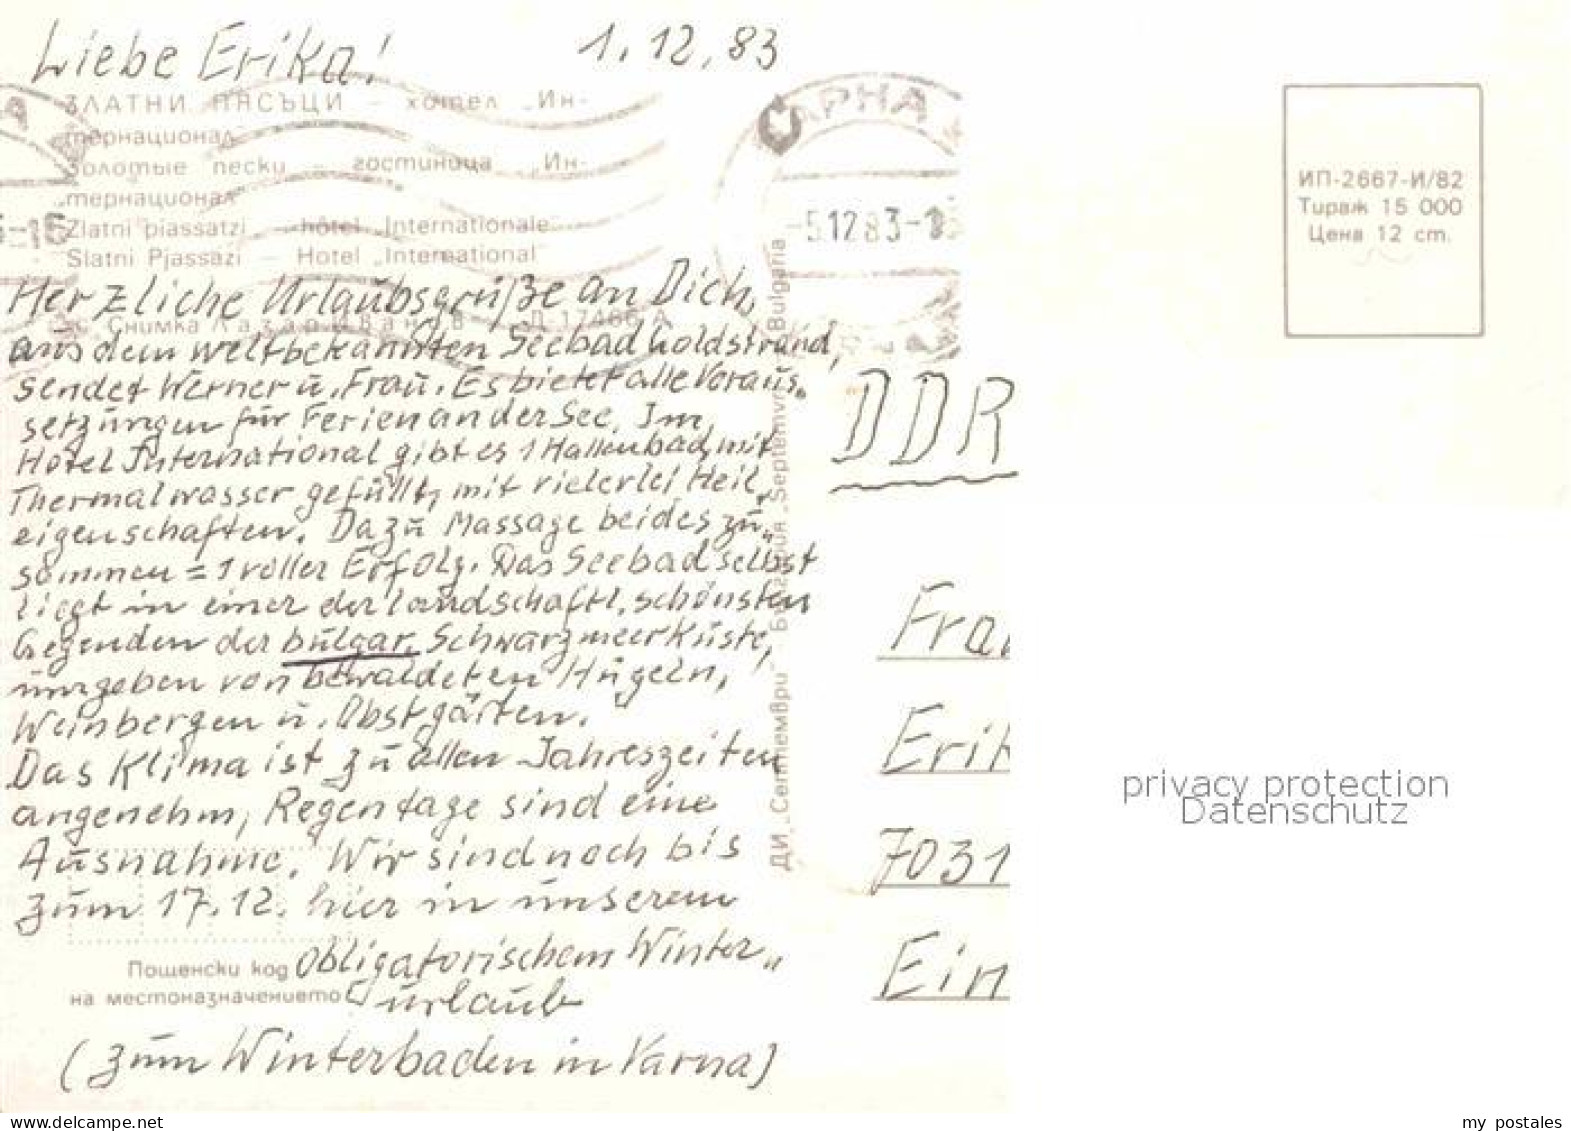 Liebe Erika!
1.12.83
ЗЛАТНИ ПЯСЪЦИ – хотел „Ин-
тернационал“
Золотые пески – гостиница „Ин-
тернационал“
Zlatni piassatzi – hôtel „Internationale“
Slatni Pjassazi – Hotel „International
Снимка Лазар Иванов Д-17466-А
ВАРНА
-5.12.83-
ИП-2667-И/82
Тираж 15 000
Цена 12 ст.
Herzliche Urlaubsgrüße an Dich,
aus dem weltbekannten Seebad Goldstrand,
sendet Werner u. Frau. Es bietet alle Voraus„
setzungen für Ferien an der See. Im
Hotel International gibt es 1 Hallenbad, mit
Thermalwasser gefüllt, mit vielerlei Heil„
eigenschaften. Dazu Massage beides zu„
sammen = 1 voller Erfolg. Das Seebad selbst
liegt in einer der landschaftl. schönsten
Gegenden der bulgar. Schwarzmeerküste,
umgeben von bewaldeten Hügeln,
Weinbergen u. Obstgärten.
Das Klima ist zu allen Jahreszeiten
angenehm, Regentage sind eine
Ausnahme. Wir sind noch bis
zum 17.12. hier in unserem
obligatorischem Winter„
urlaub
(zum Winterbaden in Varna)
Пощенски код
на местоназначението
ДИ „Септември“ – България „Septemvri“ Bulgaria
DDR
Frau
Erik
7031
Ein
privacy protection
Datenschutz
www.delcampe.net
my_postales